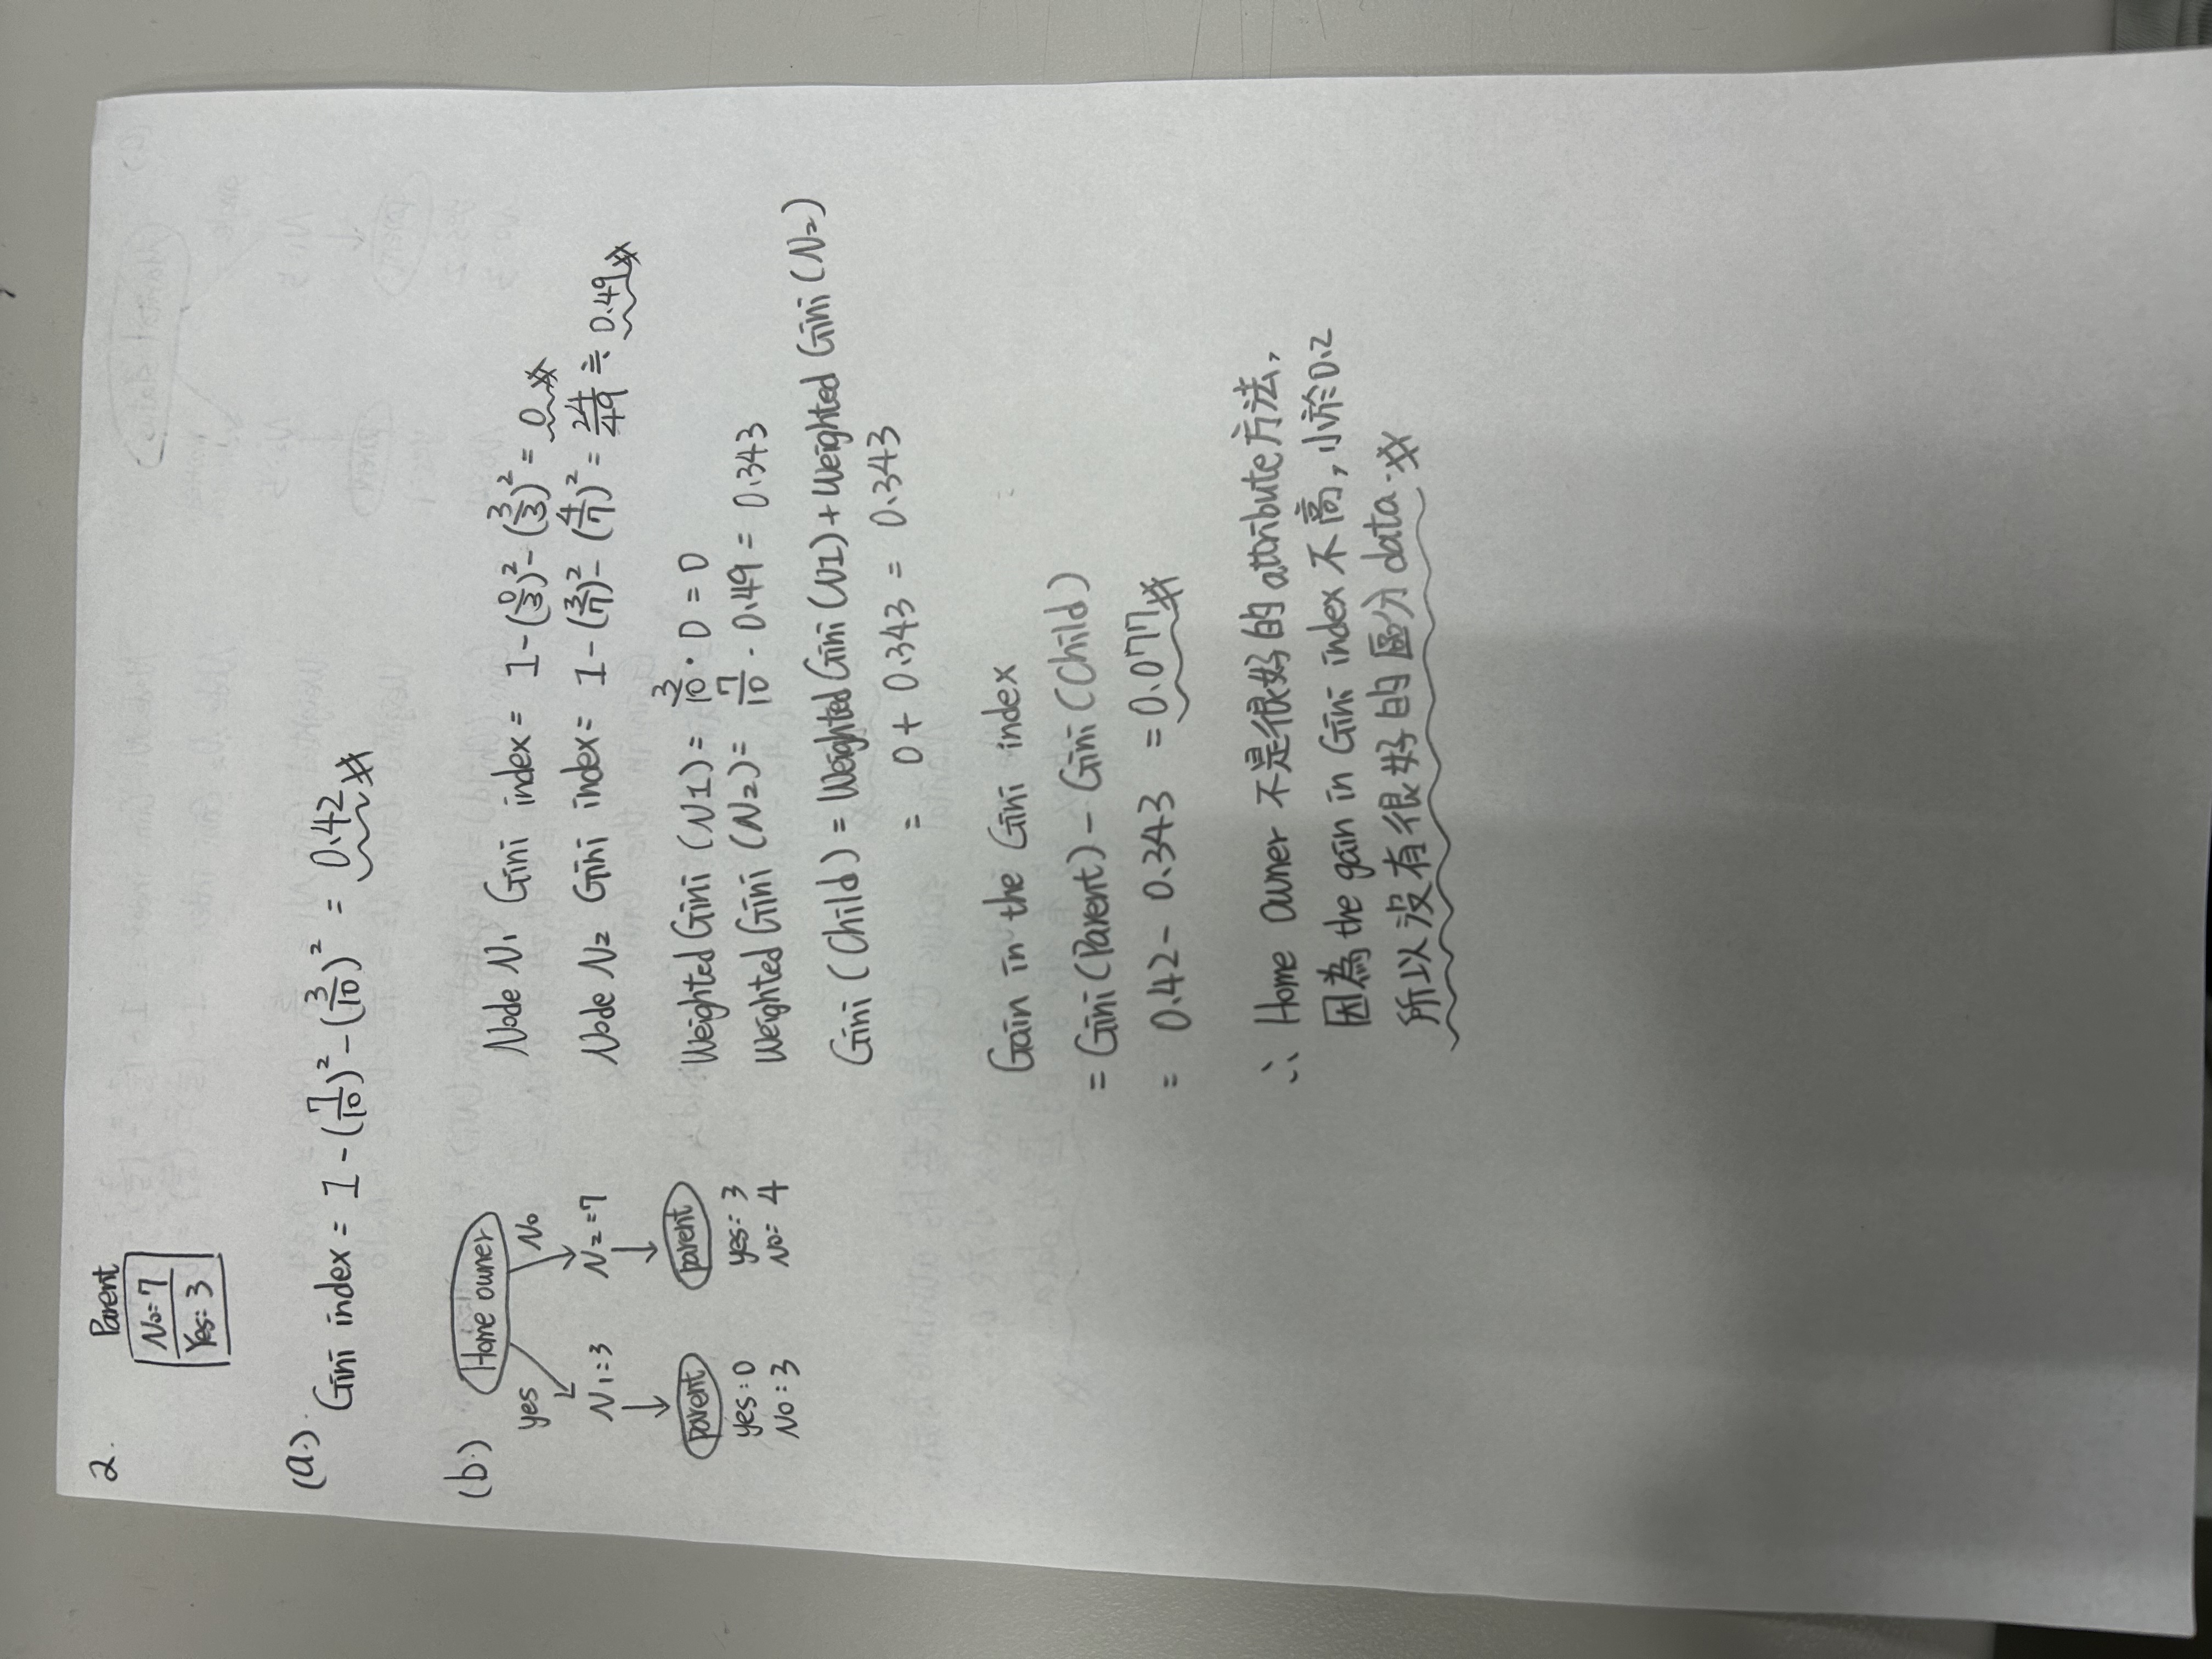 2.
Parent
No=7
Yes: 3
(a.)
Gini index = 1 - (7/10)² - (3/10)² = 0.42 #
(b.)
Home owner
yes No
N1:3 N2=7
parent parent
yes:0 yes: 3
No:3 No: 4
Node N1 Gini index = 1 - (0/3)² - (3/3)² = 0 #
Node N2 Gini index = 1 - (3/7)² - (4/7)² = 24/49 ≒ 0.49 #
Weighted Gini (N1) = 3/10 · 0 = 0
Weighted Gini (N2) = 7/10 · 0.49 = 0.343
Gini (Child) = Weighted Gini (N1) + Weighted Gini (N2)
= 0 + 0.343 = 0.343
Gain in the Gini index
= Gini (Parent) - Gini (Child)
= 0.42 - 0.343 = 0.077 #
∴ Home owner 不是很好的 attribute 方法,
因為 the gain in Gini index 不高, 小於 0.2
所以沒有很好的區分 data. #